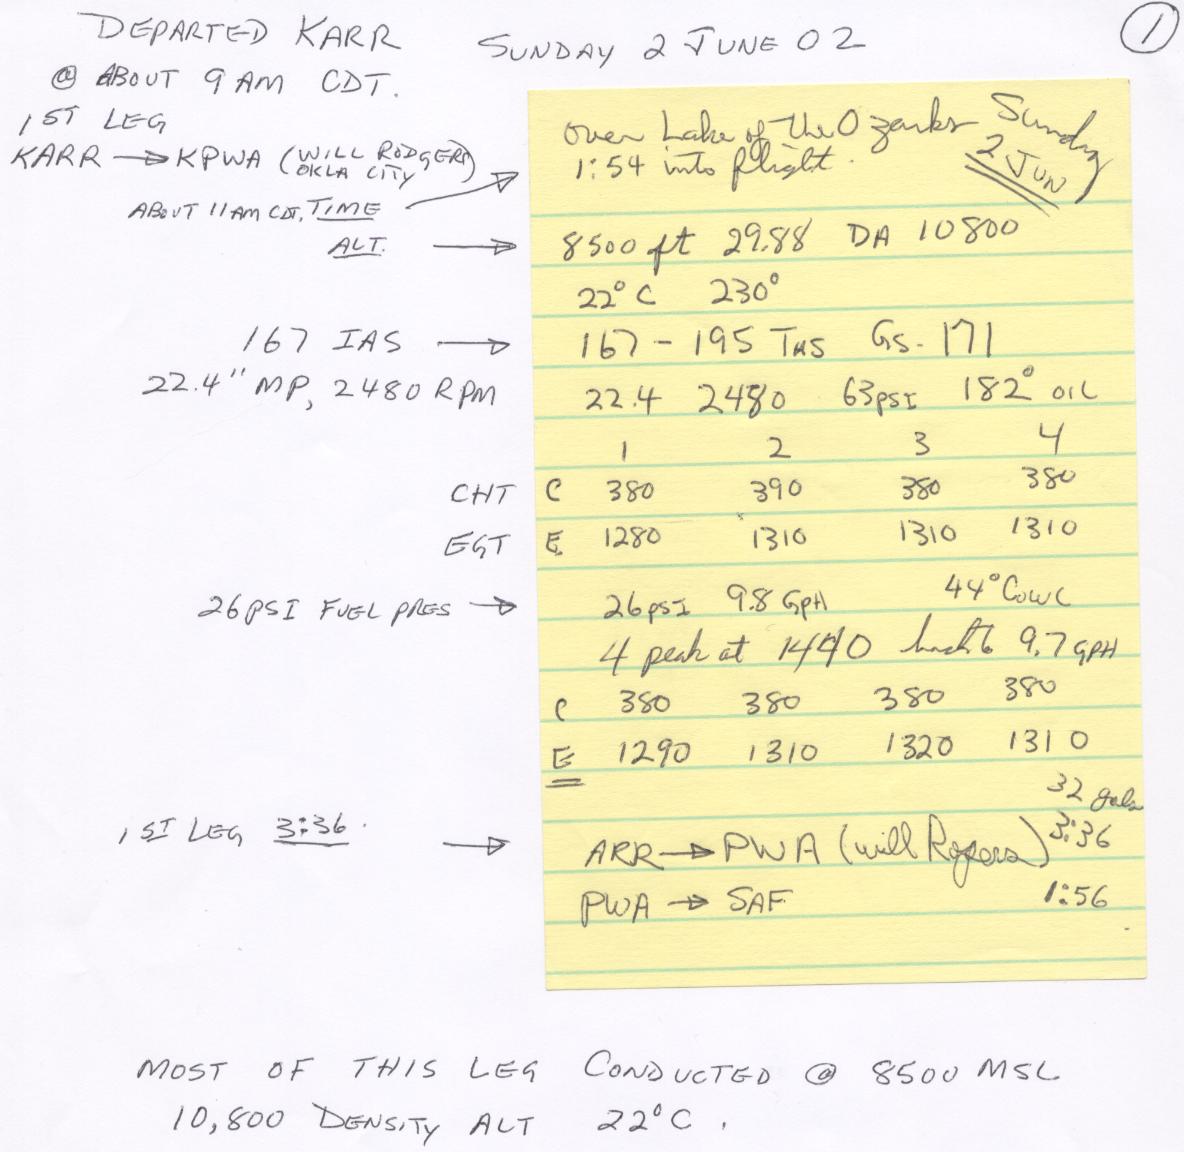 DEPARTED KARR SUNDAY 2 JUNE 02 1
@ ABOUT 9 AM CDT.
1ST LEG
KARR → KPWA (WILL RODGERS OKLA CITY)
ABOUT 11 AM CDT, TIME →
ALT. →
167 IAS →
22.4" MP, 2480 RPM
CHT
EGT
26 PSI FUEL PRES →
1ST LEG 3:36. →
over Lake of the Ozarks Sunday
1:54 into flight. 2 JUN
8500 ft 29.88 DA 10800
22° C 230°
167 - 195 TAS GS- 171
22.4 2480 63psi 182° OIL
1 2 3 4
C 380 390 380 380
E 1280 1310 1310 1310
26psi 9.8 GPH 44° COWL
4 peak at 1440 back to 9.7 GPH
C 380 380 380 380
E 1290 1310 1320 1310
32 gals
ARR → PWA (will Rogers) 3:36
PWA → SAF 1:56
MOST OF THIS LEG CONDUCTED @ 8500 MSL
10,800 DENSITY ALT 22°C.